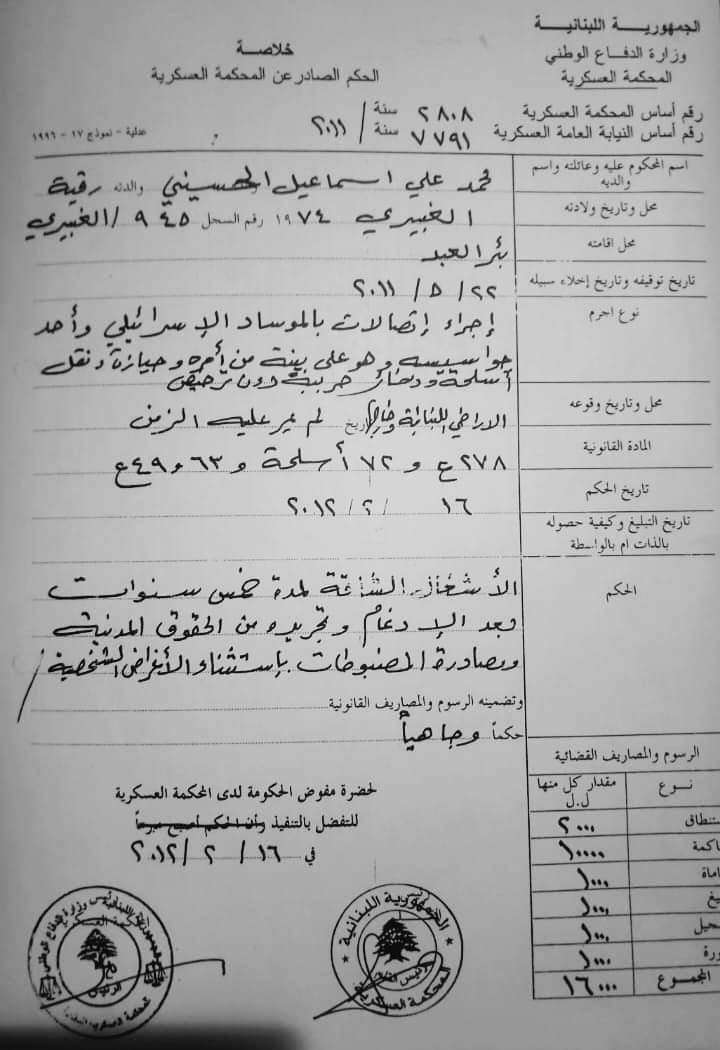 الجمهورية اللبنانية
وزارة الدفاع الوطني
المحكمة العسكرية
خلاصة
الحكم الصادر عن المحكمة العسكرية
رقم أساس المحكمة العسكرية ٢٨٠٨ سنة / ٢٠١١
رقم أساس النيابة العامة العسكرية ٧٧٩١ سنة
عدلية - نموذج ١٧ - ١٩٩٦
اسم المحكوم عليه وعائلته واسم والديه
محمد علي اسماعيل الحسيني والدته رقية
محل وتاريخ ولادته
الغبيري ١٩٧٤ رقم السجل ٩٤٥ / الغبيري
محل اقامته
بئر العبد
تاريخ توقيفه وتاريخ إخلاء سبيله
٢٢ / ٥ / ٢٠١١
نوع اجرم
إجراء إتصالات بالموساد الإسرائيلي وأحد
جواسيسه وهو على بينة من أمره وحيازة ونقل
أسلحة وذخائر حربية دون ترخيص
محل وتاريخ وقوعه
الاراضي اللبنانية وخارجها تاريخ لم يمر عليه الزمن
المادة القانونية
٢٧٨ع و ٧٢ أسلحة و ٦٣ و ٤٩ع
تاريخ الحكم
١٦ / ٢ / ٢٠١٢
تاريخ التبليغ وكيفية حصوله
بالذات ام بالواسطة
الحكم
الأشغال الشاقة لمدة خمس سنوات
بعد الإدغام وتجريده من الحقوق المدنية
ومصادرة المضبوطات بإستثناء الأغراض الشخصية /
وتضمينه الرسوم والمصاريف القانونية
حكماً وجاهياً
الرسوم والمصاريف القضائية
نوع
مقدار كل منها
ل.ل
ستنطاق ٢٠٠٠
اكمة ١٠٠٠٠
اماة ١٠٠٠
يغ ١٠٠٠
جيل ١٠٠٠
ورة ١٠٠٠
المجموع ١٦٠٠٠
لحضرة مفوض الحكومة لدى المحكمة العسكرية
للتفضل بالتنفيذ وأن الحكم أصبح مبرماً
في ١٦ / ٢ / ٢٠١٢
الجمهورية اللبنانية
المحكمة العسكرية
الرئيس